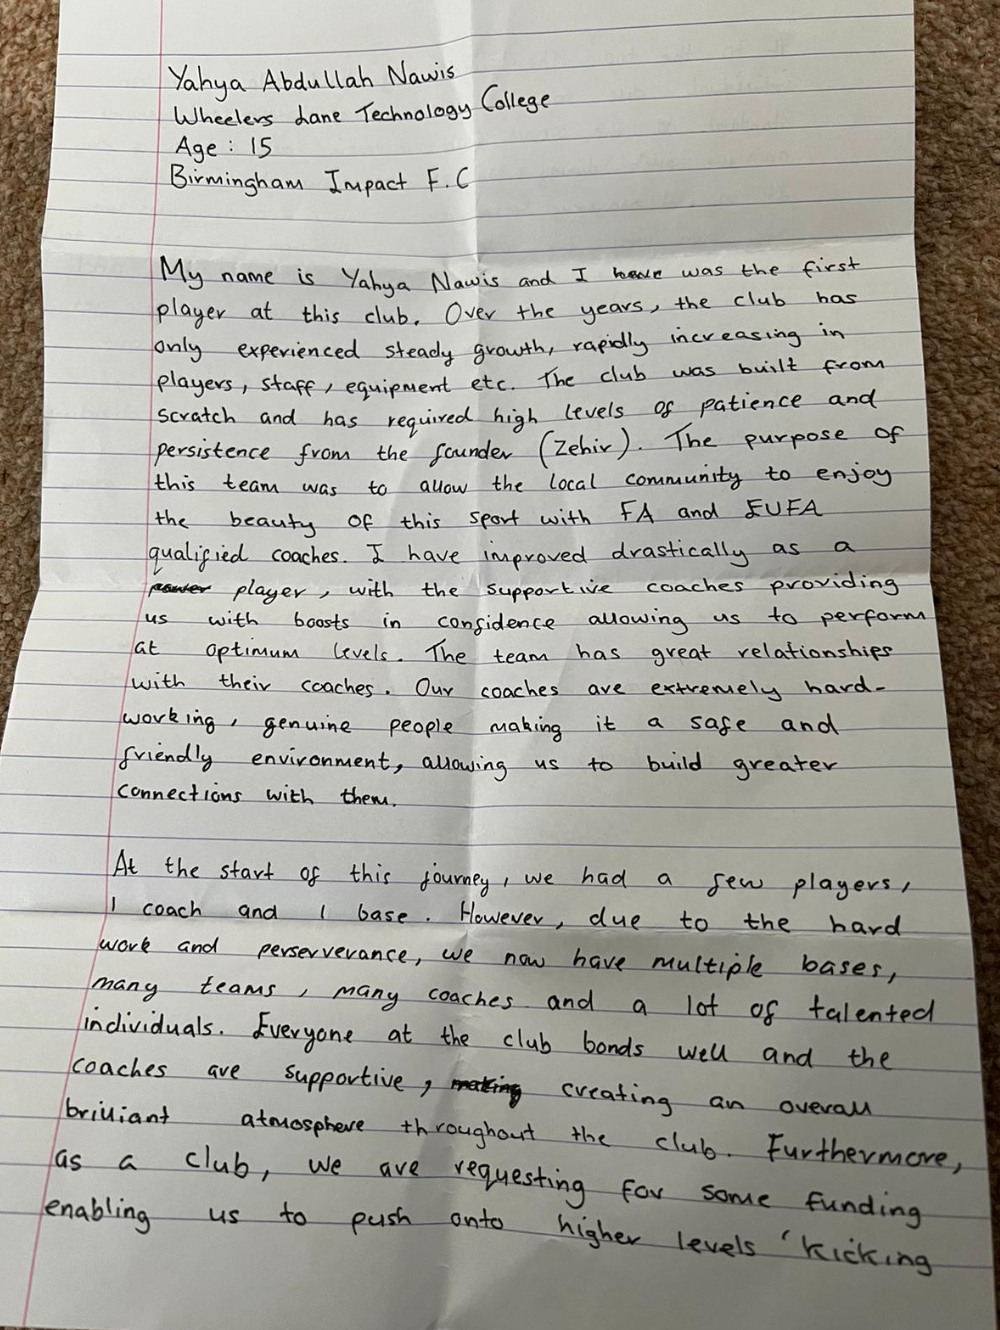 Yahya Abdullah Nawis
Wheelers Lane Technology College
Age : 15
Birmingham Impact F.C
My name is Yahya Nawis and I have was the first
player at this club. Over the years, the club has
only experienced steady growth, rapidly increasing in
players, staff, equipment etc. The club was built from
scratch and has required high levels of patience and
persistence from the founder (Zehir). The purpose of
this team was to allow the local community to enjoy
the beauty of this sport with FA and EUFA
qualified coaches. I have improved drastically as a
player, with the supportive coaches providing
us with boosts in confidence allowing us to perform
at optimum levels. The team has great relationships
with their coaches. Our coaches are extremely hard-
working, genuine people making it a safe and
friendly environment, allowing us to build greater
connections with them.
At the start of this journey, we had a few players,
1 coach and 1 base. However, due to the hard
work and perserverance, we now have multiple bases,
many teams, many coaches and a lot of talented
individuals. Everyone at the club bonds well and the
coaches are supportive, making creating an overall
brilliant atmosphere throughout the club. Furthermore,
as a club, we are requesting for some funding
enabling us to push onto higher levels 'kicking